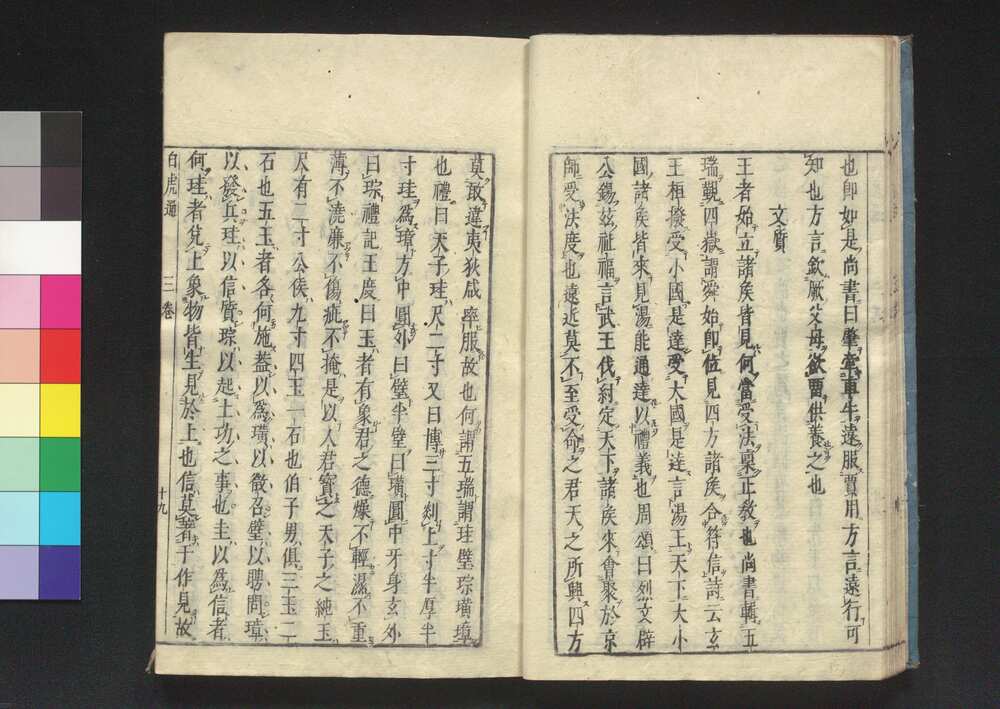 也即如是尚書曰肇牽車牛遠服賈用方言遠行可
知也方言欽厥父母欲畱供養之也
文質
王者始立諸矦皆見何當受法稟正敎也尚書輯五
瑞覲四嶽謂舜始卽位見四方諸矦合符信詩云玄
王桓撥受小國是達受大國是達言湯王天下大小
國諸矦皆來見湯能通達以禮義也周頌曰烈文辟
公錫茲祉福言武王伐紂定天下諸矦來會聚於京
師受法度也遠近莫不至受命之君天之所興四方
莫敢違夷狄咸率服故也何謂五瑞謂珪璧琮璜璋
也禮曰天子珪尺二寸又曰博三寸剡上寸半厚半
寸珪爲璋方中圓外曰璧半璧曰璜圓中牙身玄外
曰琮禮記王度曰玉者有象君之德燥不輕濕不重
薄不澆廉不傷疵不掩是以人君寶之天子之純玉
尺有二寸公矦九寸四玉一石也伯子男俱三玉二
石也五玉者各何施葢以爲璜以徵召璧以聘問璋
以發兵珪以信質琮以起土功之事也圭以爲信者
何珪者兌上象物皆生見於上也信莫著于作見故
白虎通
三卷
十九